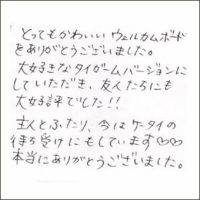 とってもかわいい ウェルカムボード
をありがとうございました。
大好きなタイガースバージョンに
していただき、友人たちにも
大好評でした!!
主人とふたり、今はケータイの
待ち受けにもしています♡♡
本当にありがとうございました。